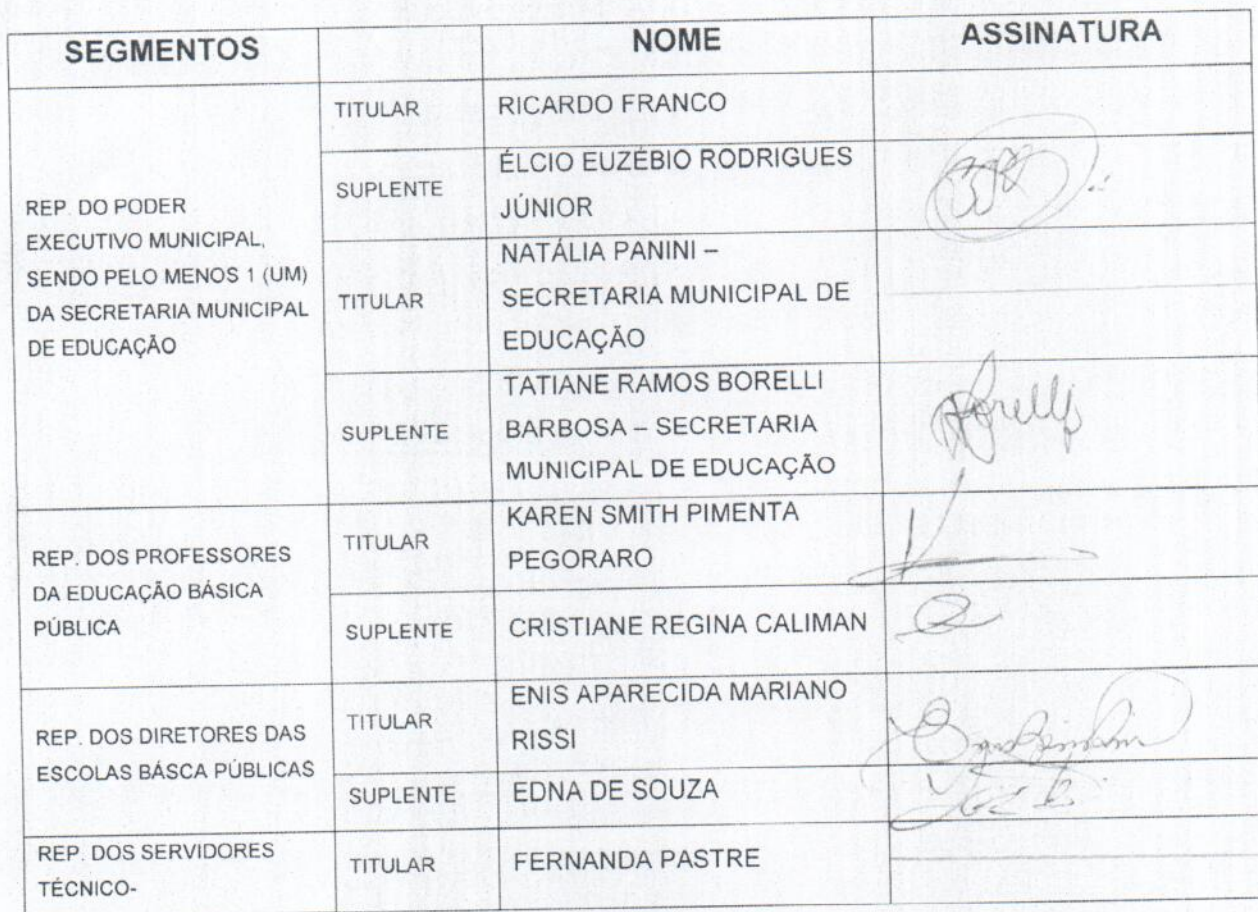 SEGMENTOS NOME ASSINATURA
REP. DO PODER
EXECUTIVO MUNICIPAL,
SENDO PELO MENOS 1 (UM)
DA SECRETARIA MUNICIPAL
DE EDUCAÇÃO
TITULAR RICARDO FRANCO
SUPLENTE ÉLCIO EUZÉBIO RODRIGUES
JÚNIOR
TITULAR NATÁLIA PANINI –
SECRETARIA MUNICIPAL DE
EDUCAÇÃO
SUPLENTE TATIANE RAMOS BORELLI
BARBOSA – SECRETARIA
MUNICIPAL DE EDUCAÇÃO
REP. DOS PROFESSORES
DA EDUCAÇÃO BÁSICA
PÚBLICA
TITULAR KAREN SMITH PIMENTA
PEGORARO
SUPLENTE CRISTIANE REGINA CALIMAN
REP. DOS DIRETORES DAS
ESCOLAS BÁSCA PÚBLICAS
TITULAR ENIS APARECIDA MARIANO
RISSI
SUPLENTE EDNA DE SOUZA
REP. DOS SERVIDORES
TÉCNICO-
TITULAR FERNANDA PASTRE